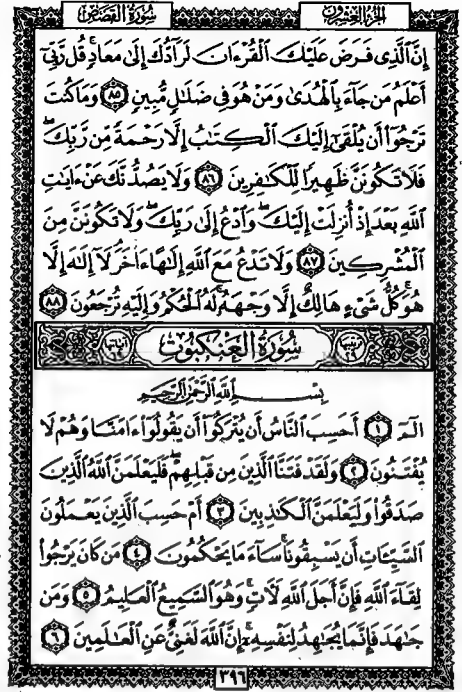 الجزء العشرون
سورة القصص
إِنَّ ٱلَّذِى فَرَضَ عَلَيْكَ ٱلْقُرْءَانَ لَرَآدُّكَ إِلَىٰ مَعَادٍۢ ۚ قُل رَّبِّىٓ
أَعْلَمُ مَن جَآءَ بِٱلْهُدَىٰ وَمَنْ هُوَ فِى ضَلَٰلٍۢ مُّبِينٍۢ ٨٥ وَمَا كُنتَ
تَرْجُوٓا۟ أَن يُلْقَىٰٓ إِلَيْكَ ٱلْكِتَٰبُ إِلَّا رَحْمَةًۭ مِّن رَّبِّكَ ۖ
فَلَا تَكُونَنَّ ظَهِيرًۭا لِّلْكَٰفِرِينَ ٨٦ وَلَا يَصُدُّنَّكَ عَنْ ءَايَٰتِ
ٱللَّهِ بَعْدَ إِذْ أُنزِلَتْ إِلَيْكَ ۖ وَٱدْعُ إِلَىٰ رَبِّكَ ۖ وَلَا تَكُونَنَّ مِنَ
ٱلْمُشْرِكِينَ ٨٧ وَلَا تَدْعُ مَعَ ٱللَّهِ إِلَٰهًا ءَاخَرَ ۘ لَآ إِلَٰهَ إِلَّا
هُوَ ۚ كُلُّ شَىْءٍ هَالِكٌ إِلَّا وَجْهَهُۥ ۚ لَهُ ٱلْحُكْمُ وَإِلَيْهِ تُرْجَعُونَ ٨٨
سورة العنكبوت
بِسْمِ ٱللَّهِ ٱلرَّحْمَٰنِ ٱلرَّحِيمِ
الٓمٓ ١ أَحَسِبَ ٱلنَّاسُ أَن يُتْرَكُوٓا۟ أَن يَقُولُوٓا۟ ءَامَنَّا وَهُمْ لَا
يُفْتَنُونَ ٢ وَلَقَدْ فَتَنَّا ٱلَّذِينَ مِن قَبْلِهِمْ ۖ فَلَيَعْلَمَنَّ ٱللَّهُ ٱلَّذِينَ
صَدَقُوا۟ وَلَيَعْلَمَنَّ ٱلْكَٰذِبِينَ ٣ أَمْ حَسِبَ ٱلَّذِينَ يَعْمَلُونَ
ٱلسَّيِّـَٔاتِ أَن يَسْبِقُونَا ۚ سَآءَ مَا يَحْكُمُونَ ٤ مَن كَانَ يَرْجُوا۟
لِقَآءَ ٱللَّهِ فَإِنَّ أَجَلَ ٱللَّهِ لَءَاتٍۢ ۚ وَهُوَ ٱلسَّمِيعُ ٱلْعَلِيمُ ٥ وَمَن
جَٰهَدَ فَإِنَّمَا يُجَٰهِدُ لِنَفْسِهِۦٓ ۚ إِنَّ ٱللَّهَ لَغَنِىٌّ عَنِ ٱلْعَٰلَمِينَ ٦
٣٩٦